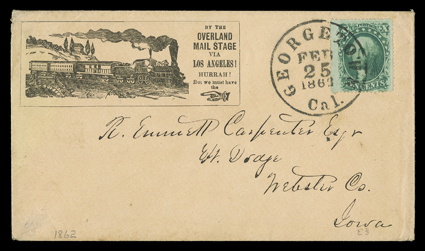 BY THE
OVERLAND
MAIL STAGE
VIA
LOS ANGELES!
HURRAH!
But we must have
the
GEORGETOWN
FEB
25
1862
Cal.
R. Emmett Carpenter Esqr
Ft. Dodge
Webster Co.
Iowa
1862